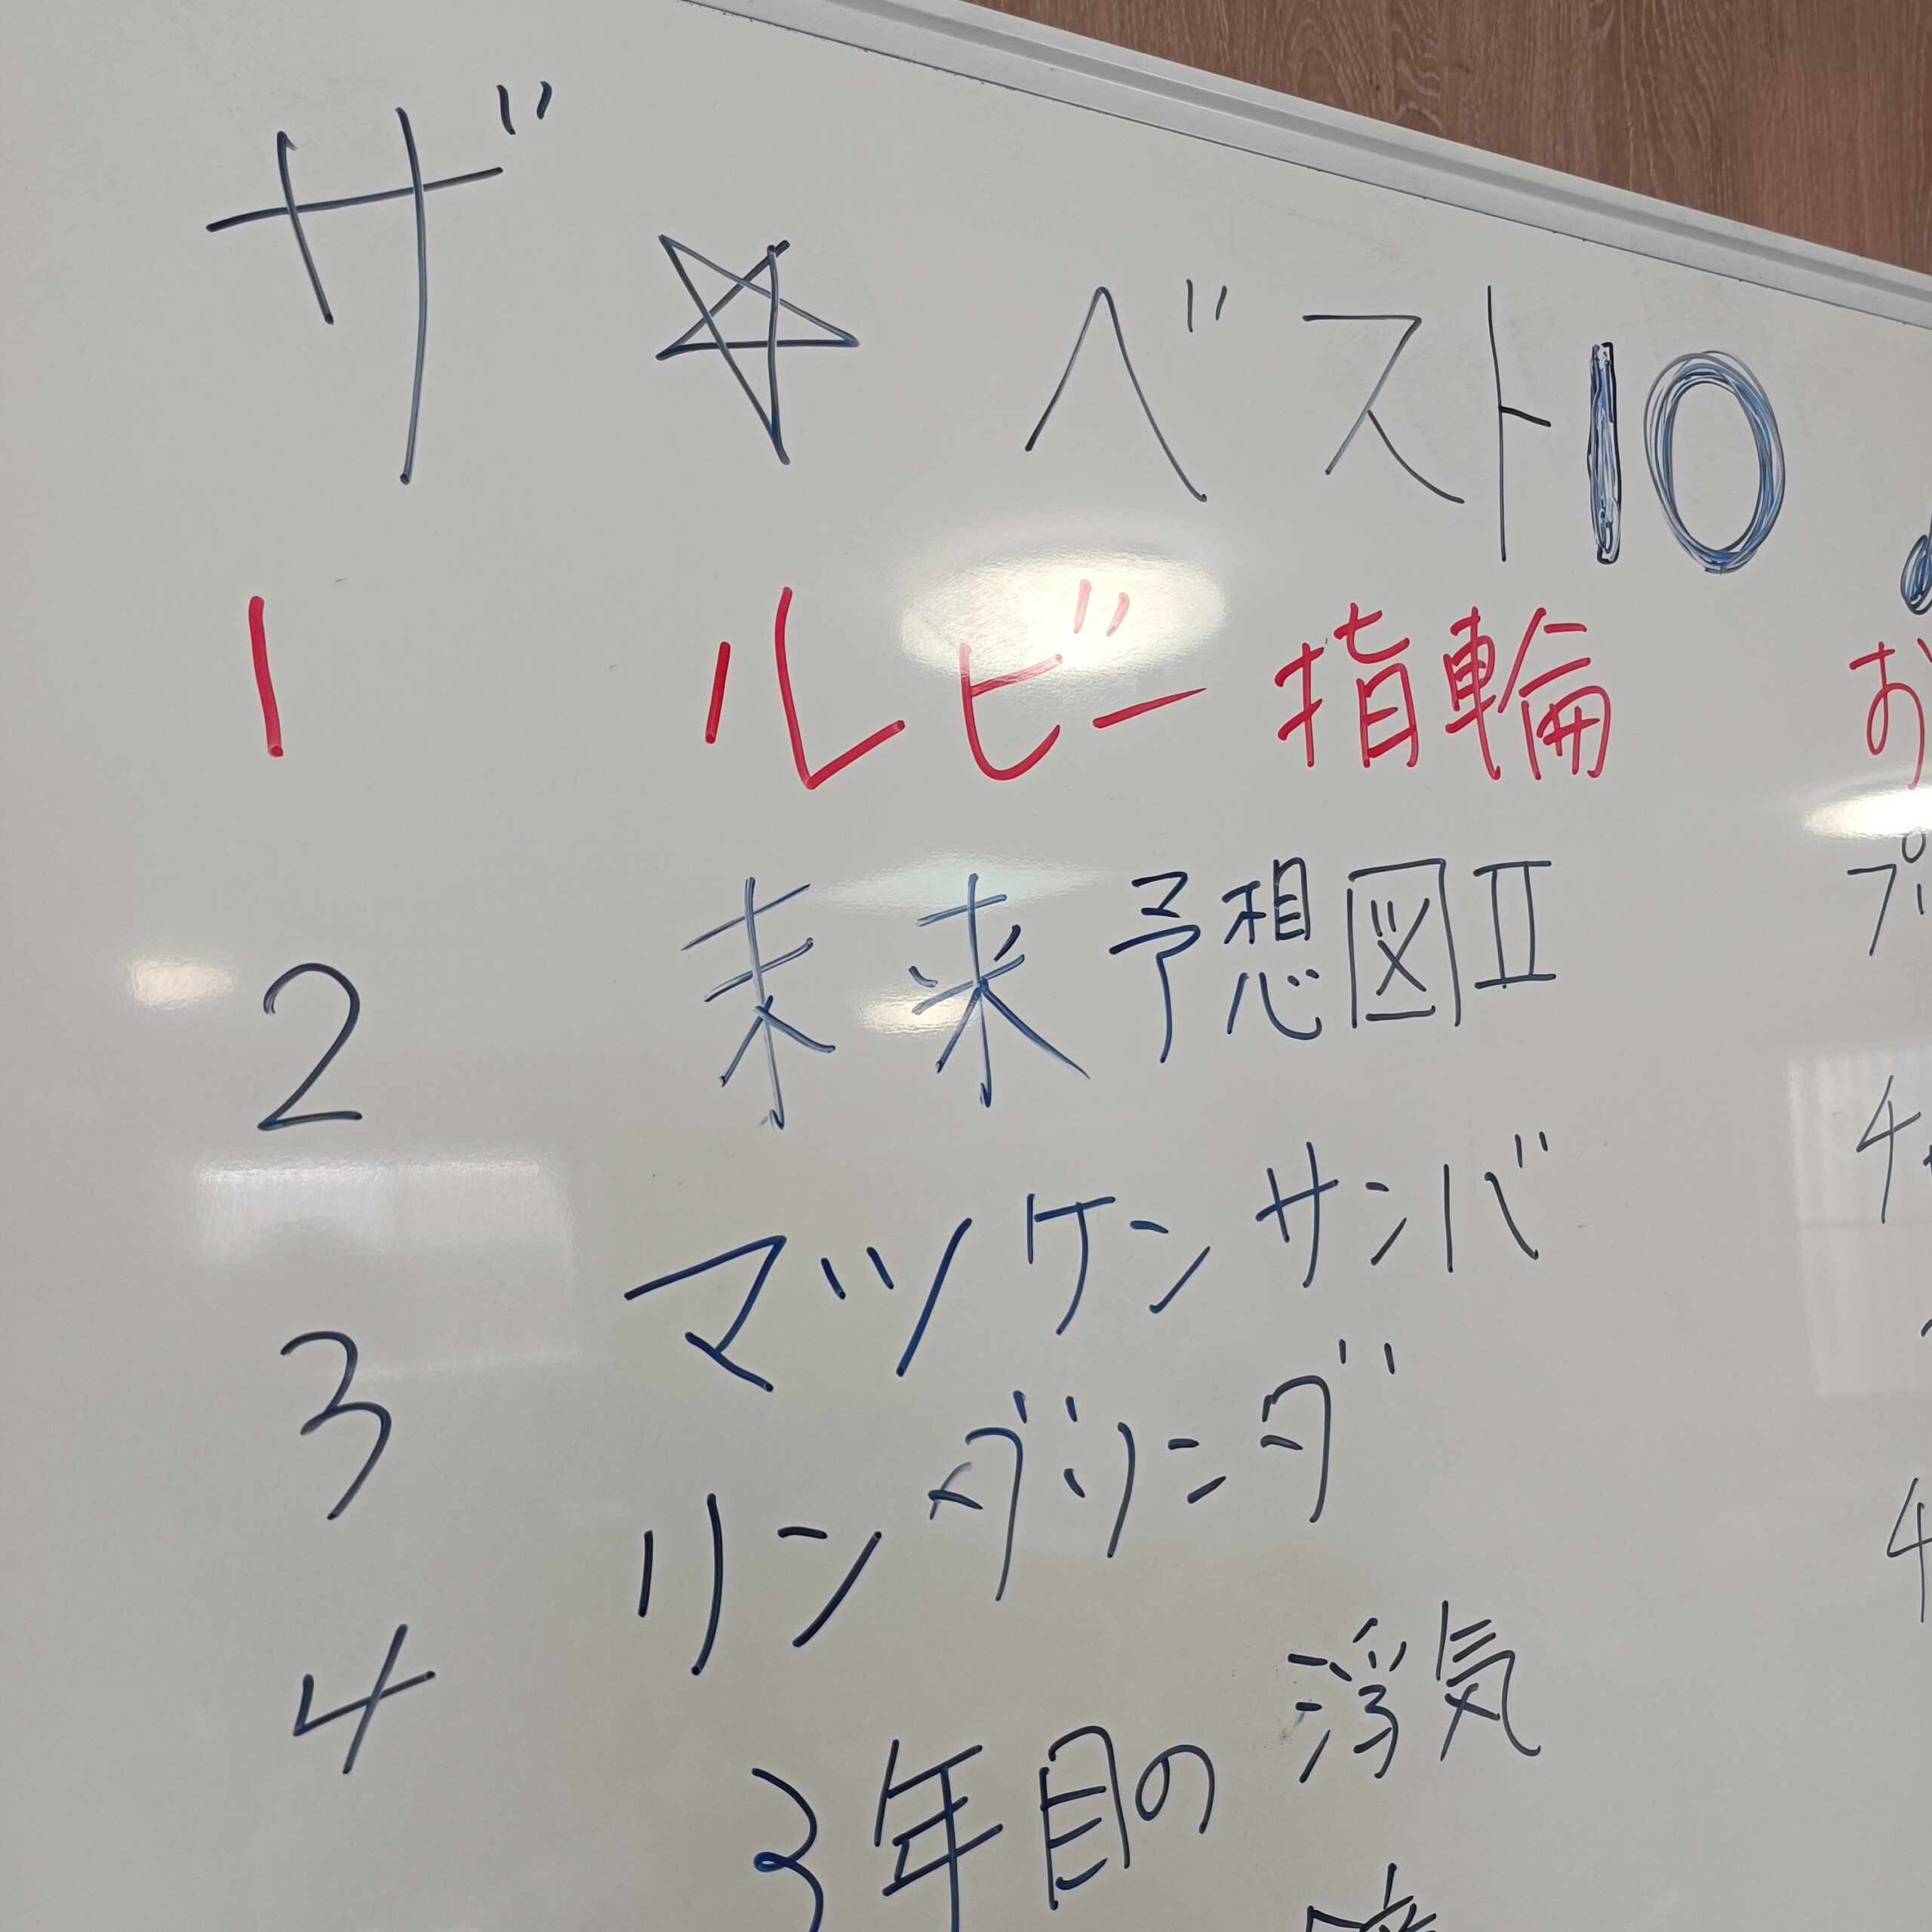 ザ☆ベスト10
1 ルビー指輪
2 未来予想図Ⅱ
3 マツケンサンバ
4 リンダリンダ
3年目の浮気